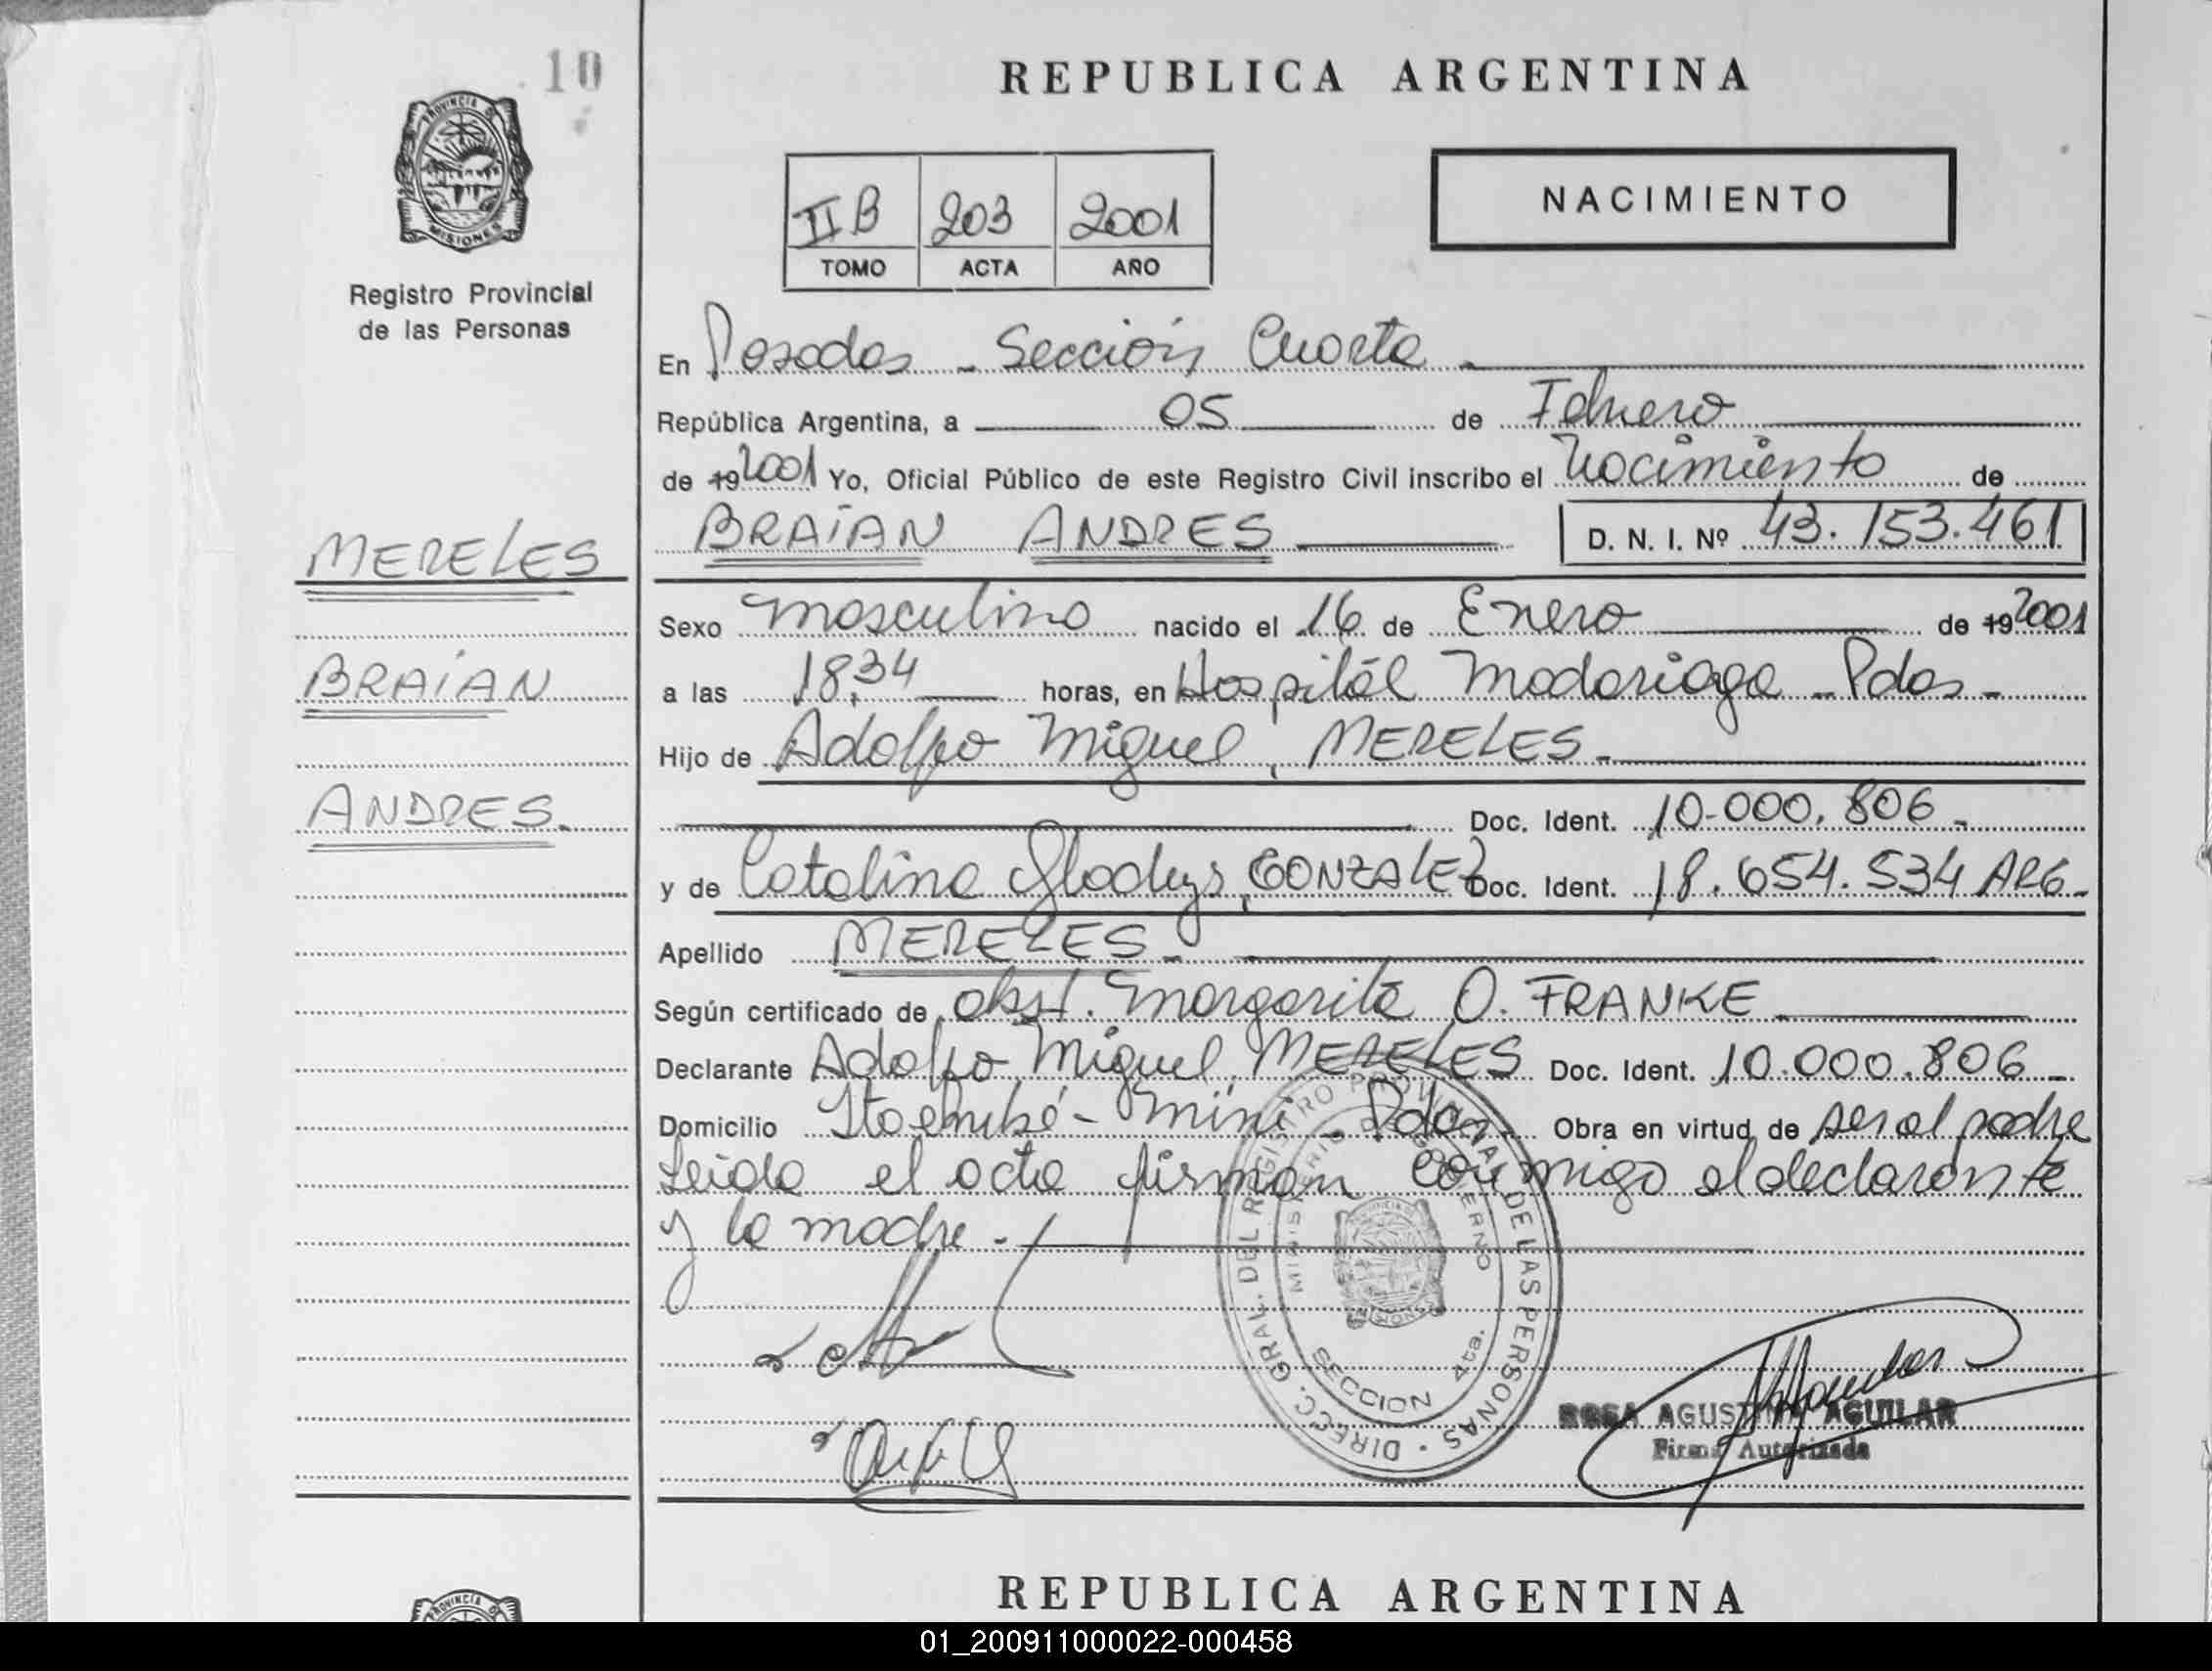 10
PROVINCIA DE
MISIONES
Registro Provincial
de las Personas
MERELES
BRAIAN
ANDRES.
REPUBLICA ARGENTINA
NACIMIENTO
II B 203 2001
TOMO ACTA AÑO
En Posadas - Sección Cuarta -
República Argentina, a 05 de Febrero
de 19 2001 Yo, Oficial Público de este Registro Civil inscribo el Nacimiento de
BRAIAN ANDRES D. N. I. Nº 43.153.461
Sexo masculino nacido el 16 de Enero de 19 2001
a las 18,34 horas, en Hospital Madariaga - Pdas -
Hijo de Adolfo Miguel, MERELES -
Doc. Ident. 10.000.806 -
y de Catalina Gladys, GONZALEZ Doc. Ident. 18.654.534 ARG -
Apellido MERELES -
Según certificado de obst. Margarita O. FRANKE
Declarante Adolfo Miguel, MERELES Doc. Ident. 10.000.806 -
Domicilio Itaembé - Miní - Pdas - Obra en virtud de ser el padre
Leída el acta firman conmigo el declarante
y la madre. -
DIRECC. GRAL. DEL REGISTRO PROVINCIAL DE LAS PERSONAS
MINISTERIO DE GOBIERNO
MISIONES
SECCION 4ta.
ROSA AGUSTINA AGUILAR
Firma Autorizada
PROVINCIA DE
REPUBLICA ARGENTINA
01_200911000022-000458